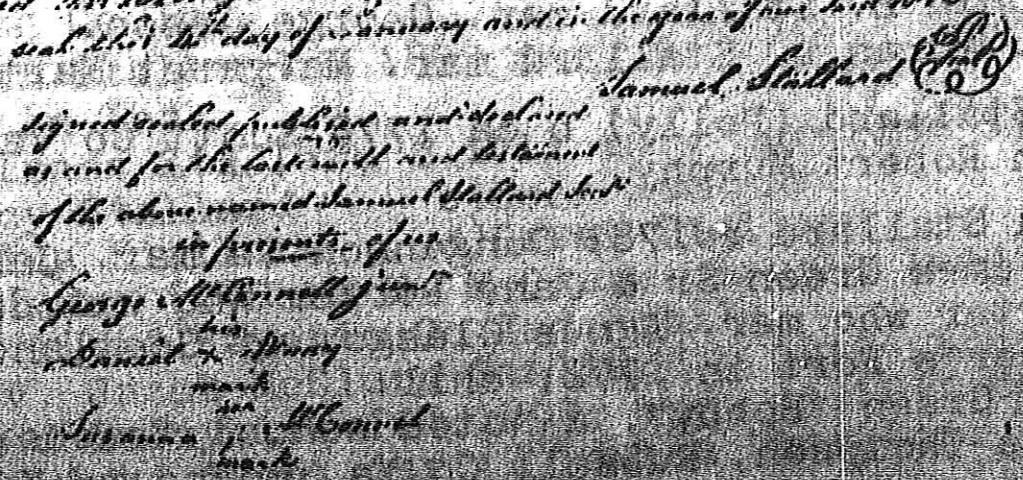 seal this 4th day of January and in the year of our Lord
Samuel Stallard Seal
signed sealed published and declared
as and for the last will and testament
of the above named Samuel Stallard Senr
in presents of us
George McConnell junr
his
Daniel x
mark
her
Susanna McConnel
mark